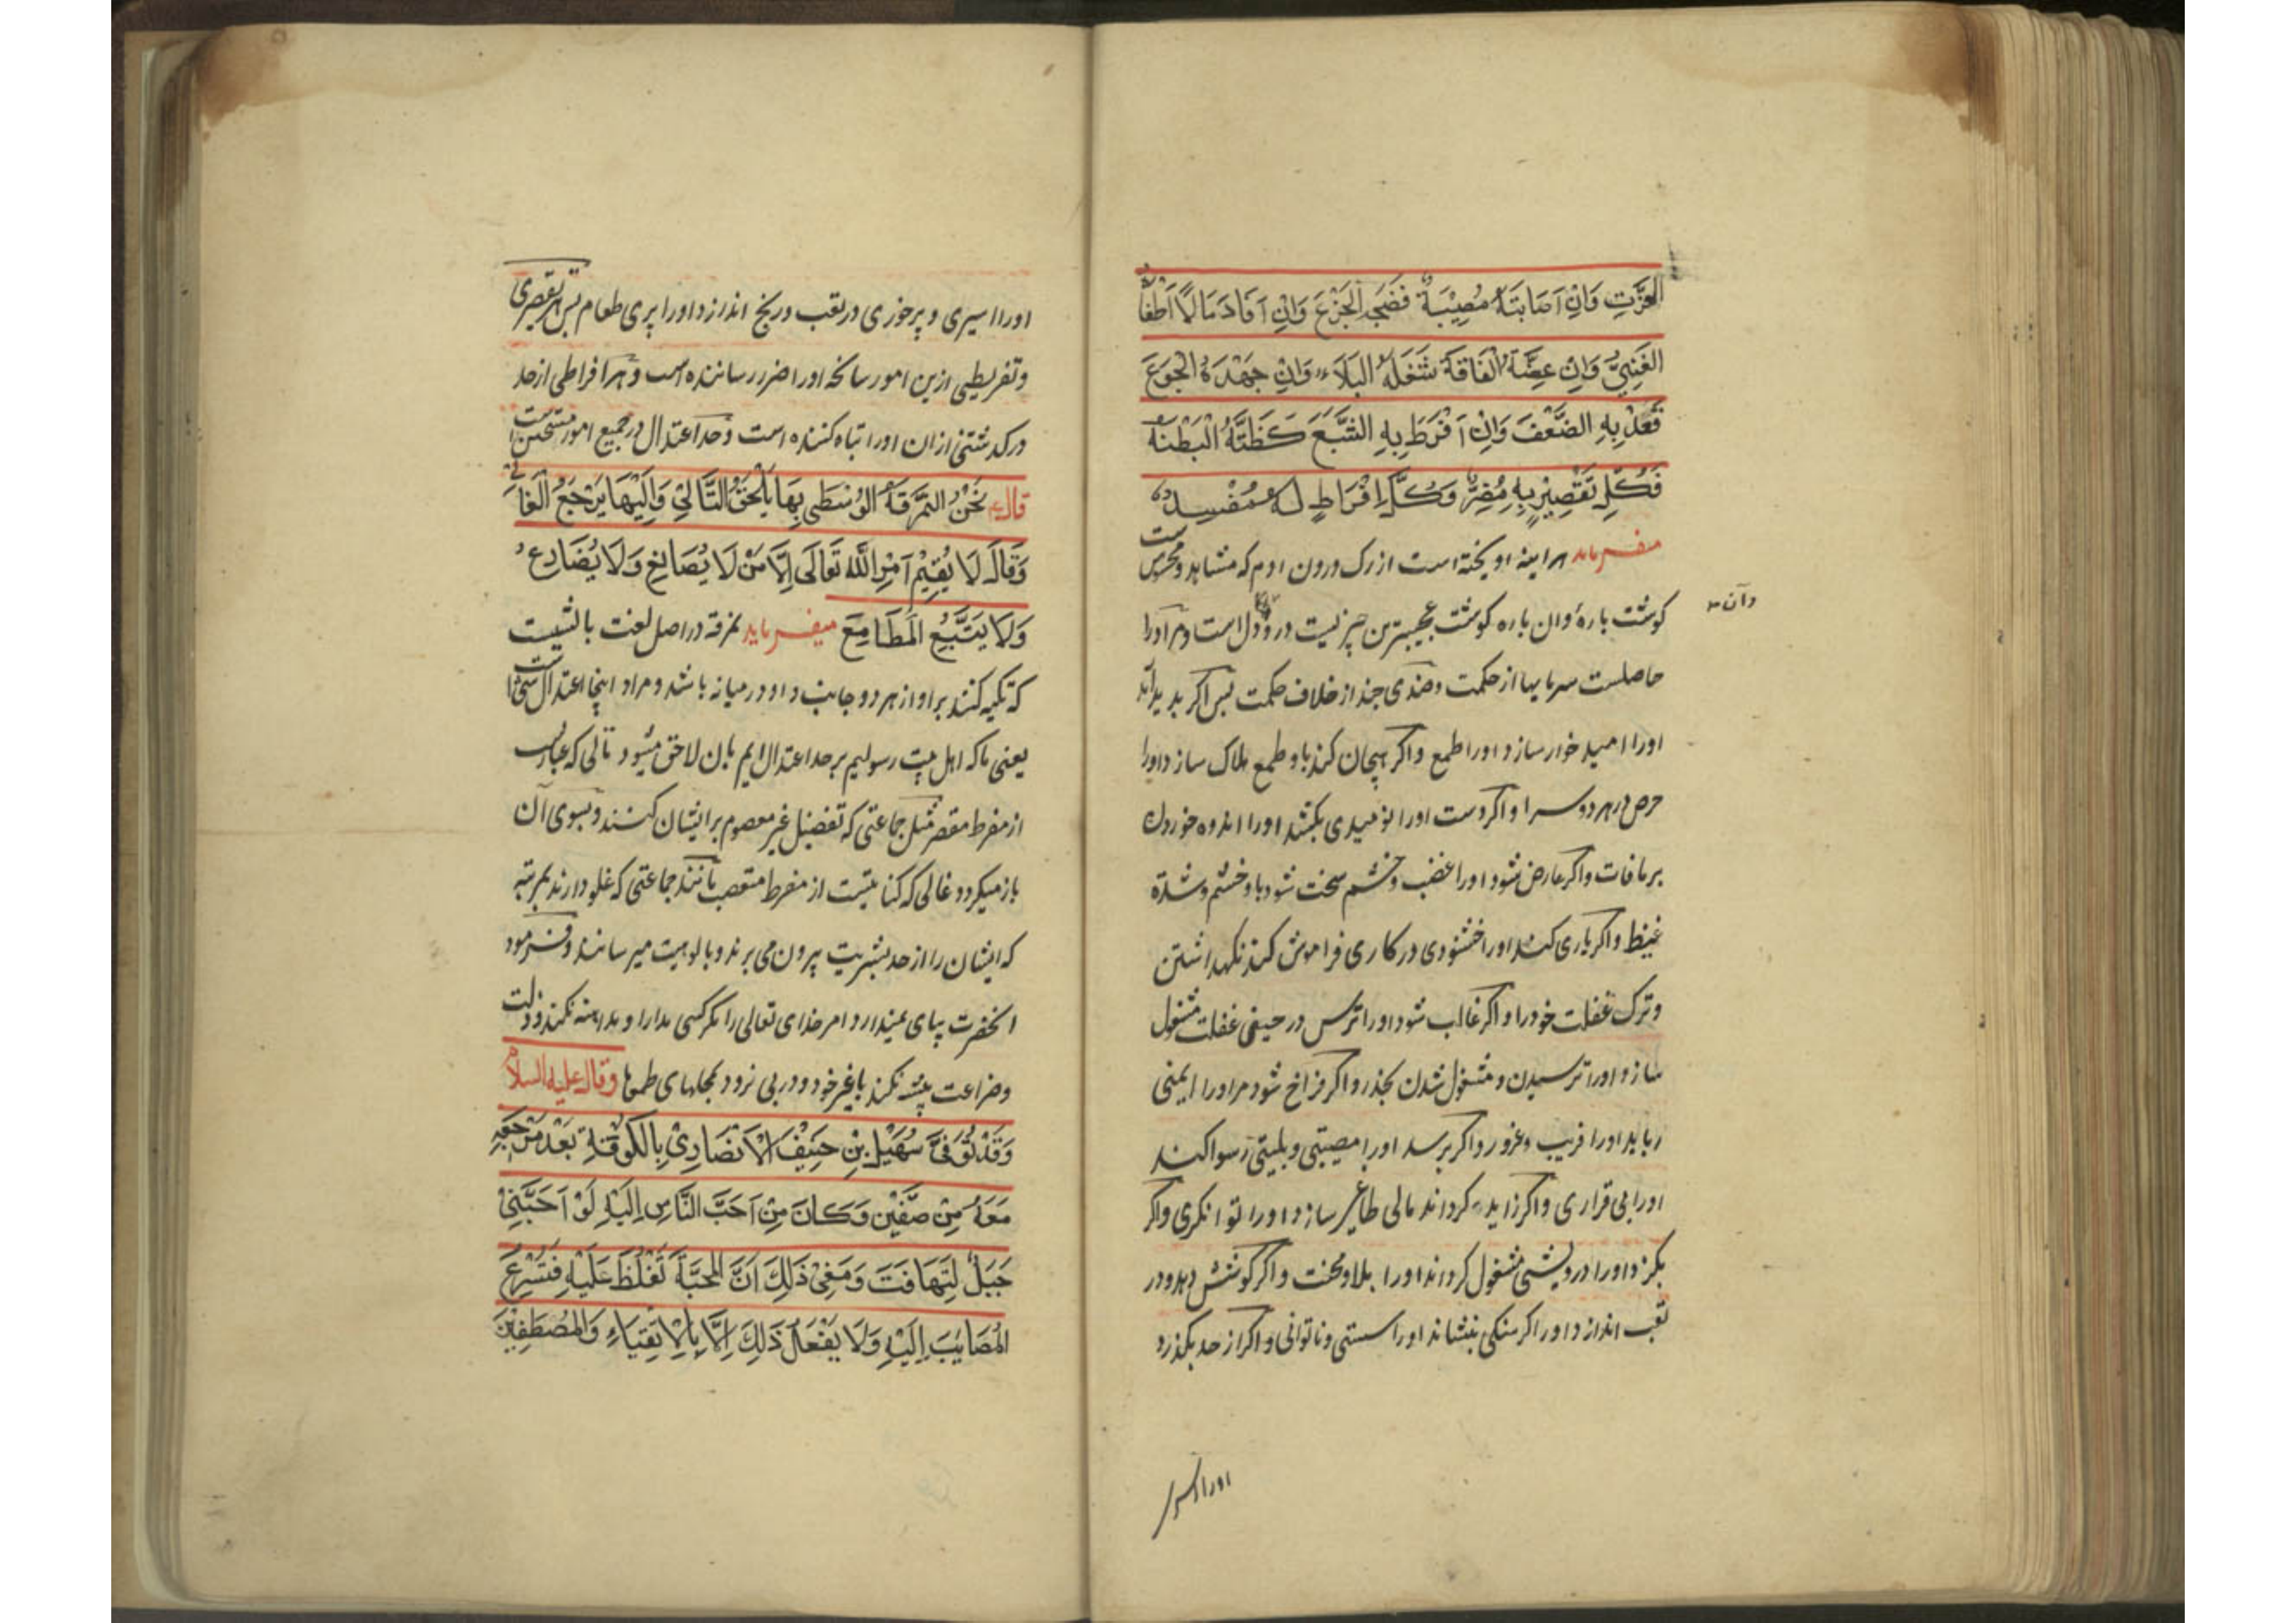 العزت وَاِنْ اَصَابَتْهُ مُصِیْبَةٌ فَضَحَهُ الْجَزَعُ وَاِنْ اَفَادَ مَالًا اَطْغَاهُ
الغَنِیُّ وَاِنْ عَضَّتْهُ الْفَاقَةُ شَغَلَهُ الْبَلَاءُ وَاِنْ جَهَدَهُ الْجُوْعُ
قَعَدَ بِهِ الضَّعْفُ وَاِنْ اَفْرَطَ بِهِ الشَّبَعُ كَظَّتْهُ الْبِطْنَةُ
فَكُلُّ تَقْصِیْرٍ بِهِ مُضِرٌّ وَكُلُّ اِفْرَاطٍ لَهُ مُفْسِدٌ
میفرماید هراینه اویخته است از رک درون ادم که مشاهد و محسوس است
کوشت باره وان باره کوشت عجیبترین چیزیست درو و آن دل است و مر اورا
حاصلست سرمایها از حکمت و ضدی چند از خلاف حکمت پس اکر پدید آید
اورا امید خوار سازد اورا طمع واکر هیجان کند باو طمع هلاک سازد اورا
حرص در هر دو سرا واکر دست اورا نومیدی بکشد اورا اندوه خوردن
بر مافات واکر عارض شود اورا غضب و خشم سخت شود باو خشم و شدة
غیظ واکر یاری کند اورا خشنودی در کاری فراموش کند نکهداشتن
وترک غفلت خودرا واکر غالب شود اورا ترس در حیفی غفلت مشغول
سازد اورا ترسیدن و مشغول شدن بحذر واکر فراخ شود مر اورا ایمنی
رباید اورا فریب و غرور واکر برسد اورا مصیبتی و بلیتی رسوا کند
اورا بی قراری واکر زاید کرداند مالی طاغی سازد اورا توانکری واکر
بکزد اورا درویشی مشغول کرداند اورا بلا و محنت واکر کوشش دهد و در
تعب اندازد اورا کرسنکی بنشاند اورا سستی و ناتوانی واکر از حد بکذرد
اورا سیری
وآن
اورا سیری و پرخوری در تعب و رنج اندازد اورا پری طعام پس هر تقصیری
و تفریطی ازین امور سانحه اورا ضرر رساننده است و هر افراطی از حد
درکذشتنی ازان اورا تباه کننده است و حد اعتدال در جمیع امور مستحسن است
قال نَحْنُ النُّمْرُقَةُ الْوُسْطٰی بِهَا یَلْحَقُ التَّالِیْ وَاِلَیْهَا یَرْجِعُ الْغَالِیْ
وَقَالَ لَا یُقِیْمُ اَمْرَ اللّٰهِ تَعَالَی اِلَّا مَنْ لَا یُصَانِعُ وَلَا یُضَارِعُ
وَلَا یَتَّبِعُ الْمَطَامِعَ میفرماید نمرقه در اصل لغت بالشیست
که تکیه کنند براو از هر دو جانب و او در میانه باشد و مراد اینجا اعتدال است
یعنی ماکه اهل بیت رسولیم بر حد اعتدال ایم بان لاحق میشود تالی که عبارتست
از مفرط مقصر مثل جماعتی که تفضیل غیر معصوم بر ایشان کنند و بسوی آن
باز میکردد غالی که کنایتست از مفرط متعصب مانند جماعتی که غلو دارند بمرتبه
که ایشان را از حد بشریت بیرون می برند و بالوهیت میرسانند و فرمود
انحضرت بپای نمیدارد امر خدای تعالی را مکر کسی مدارا و مداهنه نکند و ذلت
وضراعت پیشه نکند باغیر خود و در پی نرود بمحلهای طمعها وقال علیه السلام
وَقَدْ تُوُفِّیَ سُهَیْلُ بْنِ حَنِیْفٍ الْاَنْصَارِیِّ بِالْکُوْفَةِ بَعْدَ مَرْجِعِهِ
مَعَهُ مِنْ صِفِّیْنَ وَکَانَ مِنْ اَحَبِّ النَّاسِ اِلَیْهِ لَوْ اَحَبَّنِیْ
جَبَلٌ لَتَهَافَتَ وَمَعْنٰی ذٰلِكَ اَنَّ الْمَحَبَّةَ تَغْلُظُ عَلَیْهِ فَتَسْرِعُ
الْمَصَائِبُ اِلَیْهِ وَلَا یَفْعَلُ ذٰلِكَ اِلَّا بِالْاَتْقِیَاءِ وَالْمُصْطَفَیْنَ